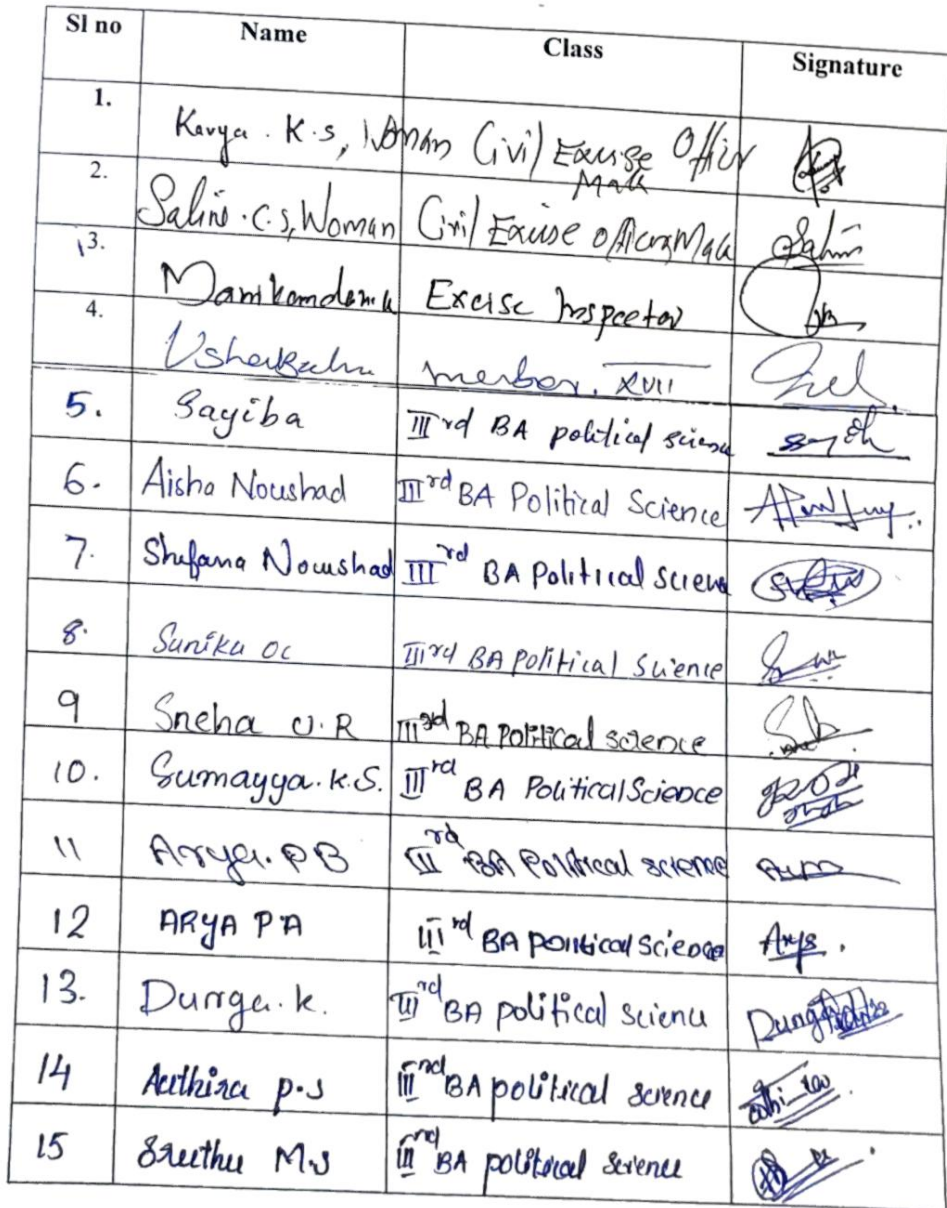 Sl no Name Class Signature
1. Kavya . K.S, Woman Civil Excise Officer
Mala
2. Salini . C.S, Woman Civil Excise officer, Mala Salini
3. Excise Inspector
4. member. XVII
5. Sayiba III rd BA political science
6. Aisha Noushad III rd BA Political Science
7. Shifana Noushad III rd BA Political Science
8. Sanika OC III rd BA political Science
9 Sneha U.R III rd BA Political science
10. Sumayya. K.S. III rd BA Political Science
11 Arya. P B III rd BA Political science Arya
12 ARYA P A III rd BA political Science Arya .
13. Durga. K. III rd BA political science Durga
14 Aathira p.s III rd BA political science
15 Sruthu M.S III rd BA political science